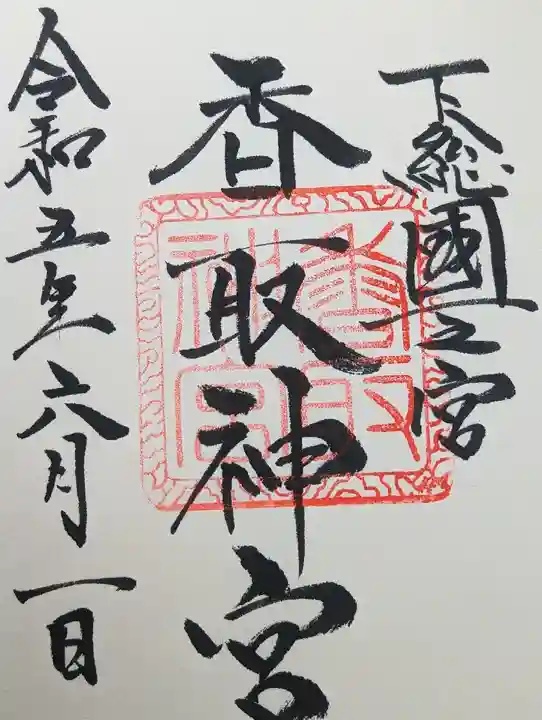 下総國一之宮
香取神宮
令和五年六月一日
香取神宮